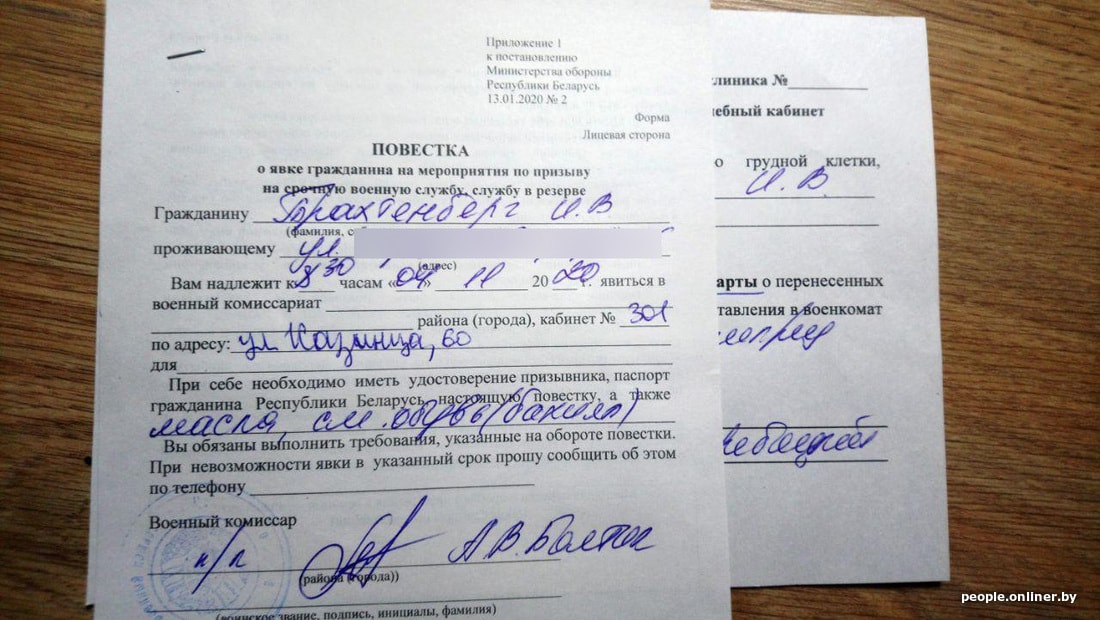 Приложение 1
к постановлению
Министерства обороны
Республики Беларусь
13.01.2020 № 2
Форма
Лицевая сторона
ПОВЕСТКА
о явке гражданина на мероприятия по призыву
на срочную военную службу, службу в резерве
Гражданину Трахтенберг И.В
(фамилия, с
проживающему ул.
(адрес)
Вам надлежит к 8 30 часам «04» 11 2020 г. явиться в
военный комиссариат
района (города), кабинет № 301
по адресу: ул Казинца, 60
для
При себе необходимо иметь удостоверение призывника, паспорт
гражданина Республики Беларусь, настоящую повестку, а также
маска, см. обувь (бахилы)
Вы обязаны выполнить требования, указанные на обороте повестки.
При невозможности явки в указанный срок прошу сообщить об этом
по телефону
Военный комиссар
п/п А.В.Болтог
(района (города))
(воинское звание, подпись, инициалы, фамилия)
линика №
ебный кабинет
о грудной клетки,
И.В.
арты о перенесенных
тавления в военкомат
people.onliner.by